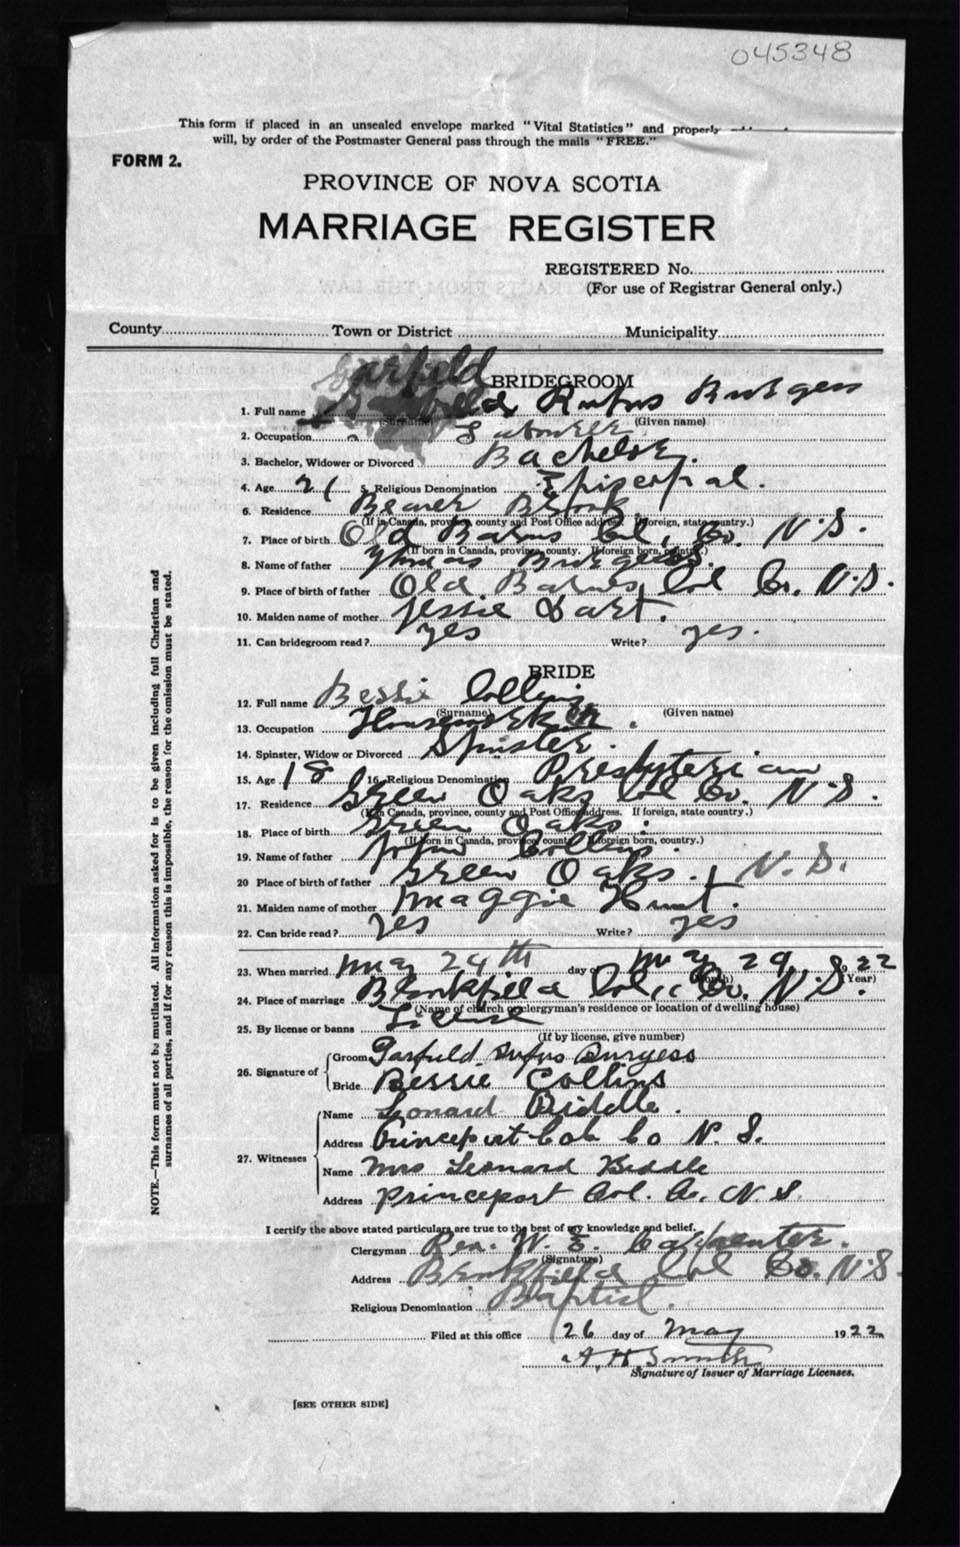 045348
This form if placed in an unsealed envelope marked "Vital Statistics" and properly
will, by order of the Postmaster General pass through the mails "FREE."
FORM 2.
PROVINCE OF NOVA SCOTIA
MARRIAGE REGISTER
REGISTERED No.
(For use of Registrar General only.)
County Town or District Municipality
Garfield
BRIDEGROOM
1. Full name Rufus Burgess
(Surname) (Given name)
2. Occupation Labourer
3. Bachelor, Widower or Divorced Bachelor.
4. Age 21 5. Religious Denomination Episcopal
6. Residence Beaver Brook
(If in Canada, province, county and Post Office address. If foreign, state country.)
7. Place of birth Old Barns Col, Co. N.S.
(If born in Canada, province, county. If foreign born, country.)
8. Name of father Thomas Burgess.
9. Place of birth of father Old Barns Col Co. N.S.
10. Maiden name of mother Jessie Dart.
11. Can bridegroom read? yes Write? yes.
BRIDE
12. Full name Bessie Collins
(Surname) (Given name)
13. Occupation Housework.
14. Spinster, Widow or Divorced Spinster.
15. Age 18 16. Religious Denomination Presbyterian
17. Residence Green Oaks Col Co. N.S.
(If in Canada, province, county and Post Office address. If foreign, state country.)
18. Place of birth Green Oaks.
(If born in Canada, province county. If foreign born, country.)
19. Name of father John Collins.
20 Place of birth of father Green Oaks. N.S.
21. Maiden name of mother Maggie Hunt.
22. Can bride read? Yes Write? yes
23. When married May 24th day of May 29 1922
(Month) (Year)
24. Place of marriage Brookfield Col, Co. N.S.
(Name of church or clergyman's residence or location of dwelling house)
25. By license or banns License
(If by license, give number)
26. Signature of Groom Garfield Rufus Burgess
Bride Bessie Collins
27. Witnesses Name Lonard Biddle.
Address Princeport Col Co N.S.
Name Mrs Leonard Biddle
Address Princeport Col. Co. N.S.
I certify the above stated particulars are true to the best of my knowledge and belief.
Clergyman Rev. W. E. Carpenter.
(Signature)
Address Brookfield Col Co. N.S.
Religious Denomination Baptist.
Filed at this office 26 day of May 1922
A. H. Smith
Signature of Issuer of Marriage Licenses.
[SEE OTHER SIDE]
NOTE.—This form must not be mutilated. All information asked for is to be given including full Christian and
surnames of all parties, and if for any reason this is impossible, the reason for the omission must be stated.